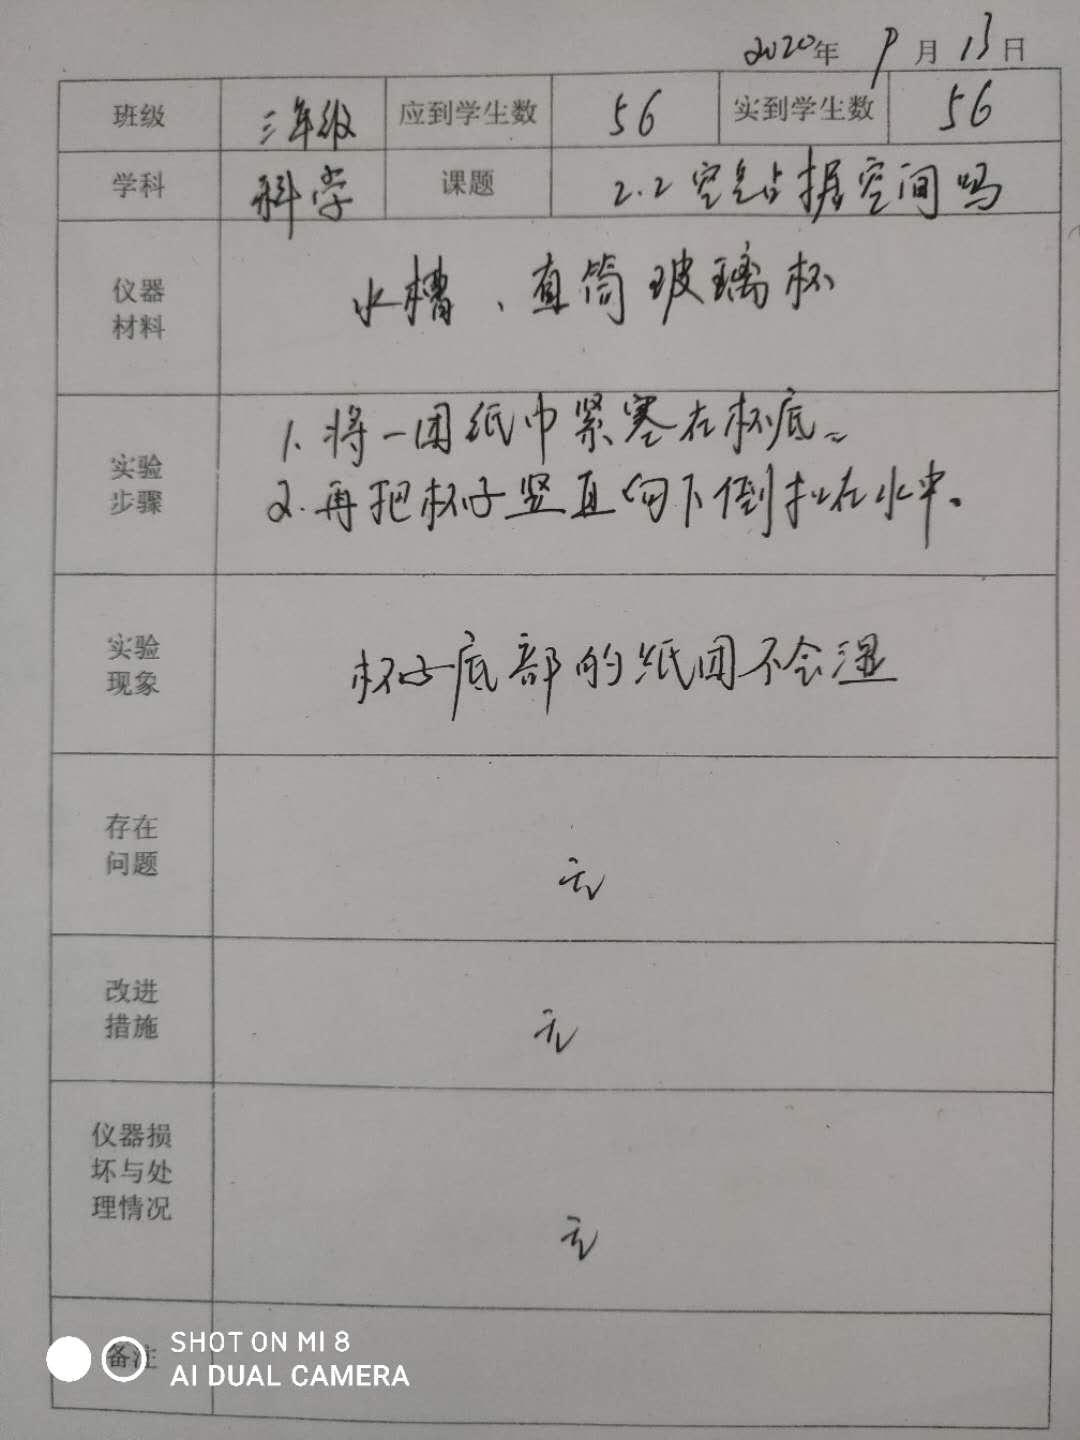 2020年 9月 13日
班级 三年级 应到学生数 56 实到学生数 56
学科 科学 课题 2.2 空气占据空间吗
仪器
材料
水槽、直筒玻璃杯
1. 将一团纸巾紧塞在杯底。
实验
步骤
2. 再把杯子竖直向下倒扣在水中。
实验
现象
杯子底部的纸团不会湿
存在
问题
无
改进
措施
无
仪器损
坏与处
理情况
无
备注
SHOT ON MI 8
AI DUAL CAMERA